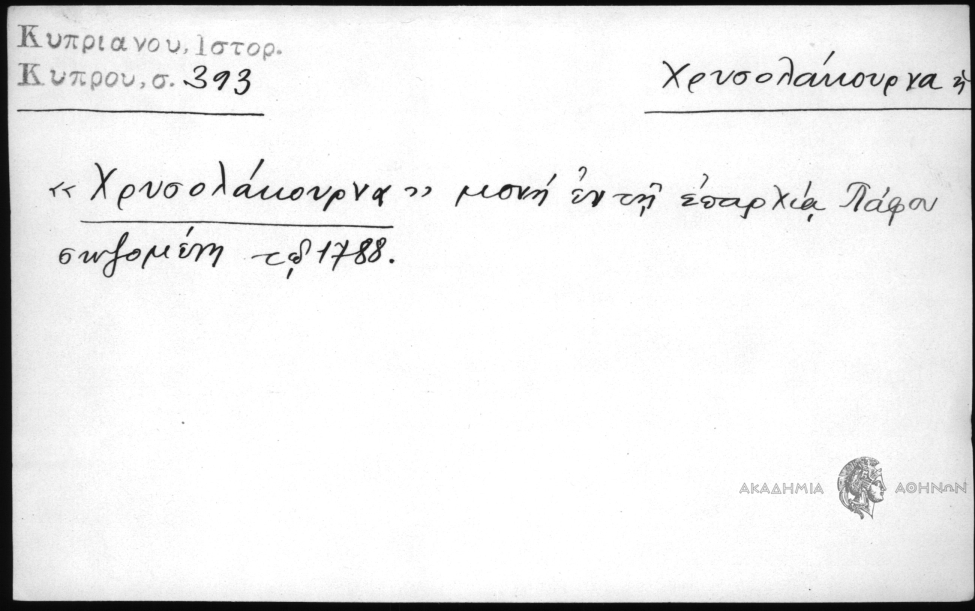 Κυπριανου, Ιστορ.
Κυπρου, σ. 393
Χρυσολάκουρνα ἡ
« Χρυσολάκουρνα » μονή ἐν τῇ ἐπαρχίᾳ Πάφου
σωζομένη τῷ 1788.
ΑΚΑΔΗΜΙΑ ΑΘΗΝΩΝ